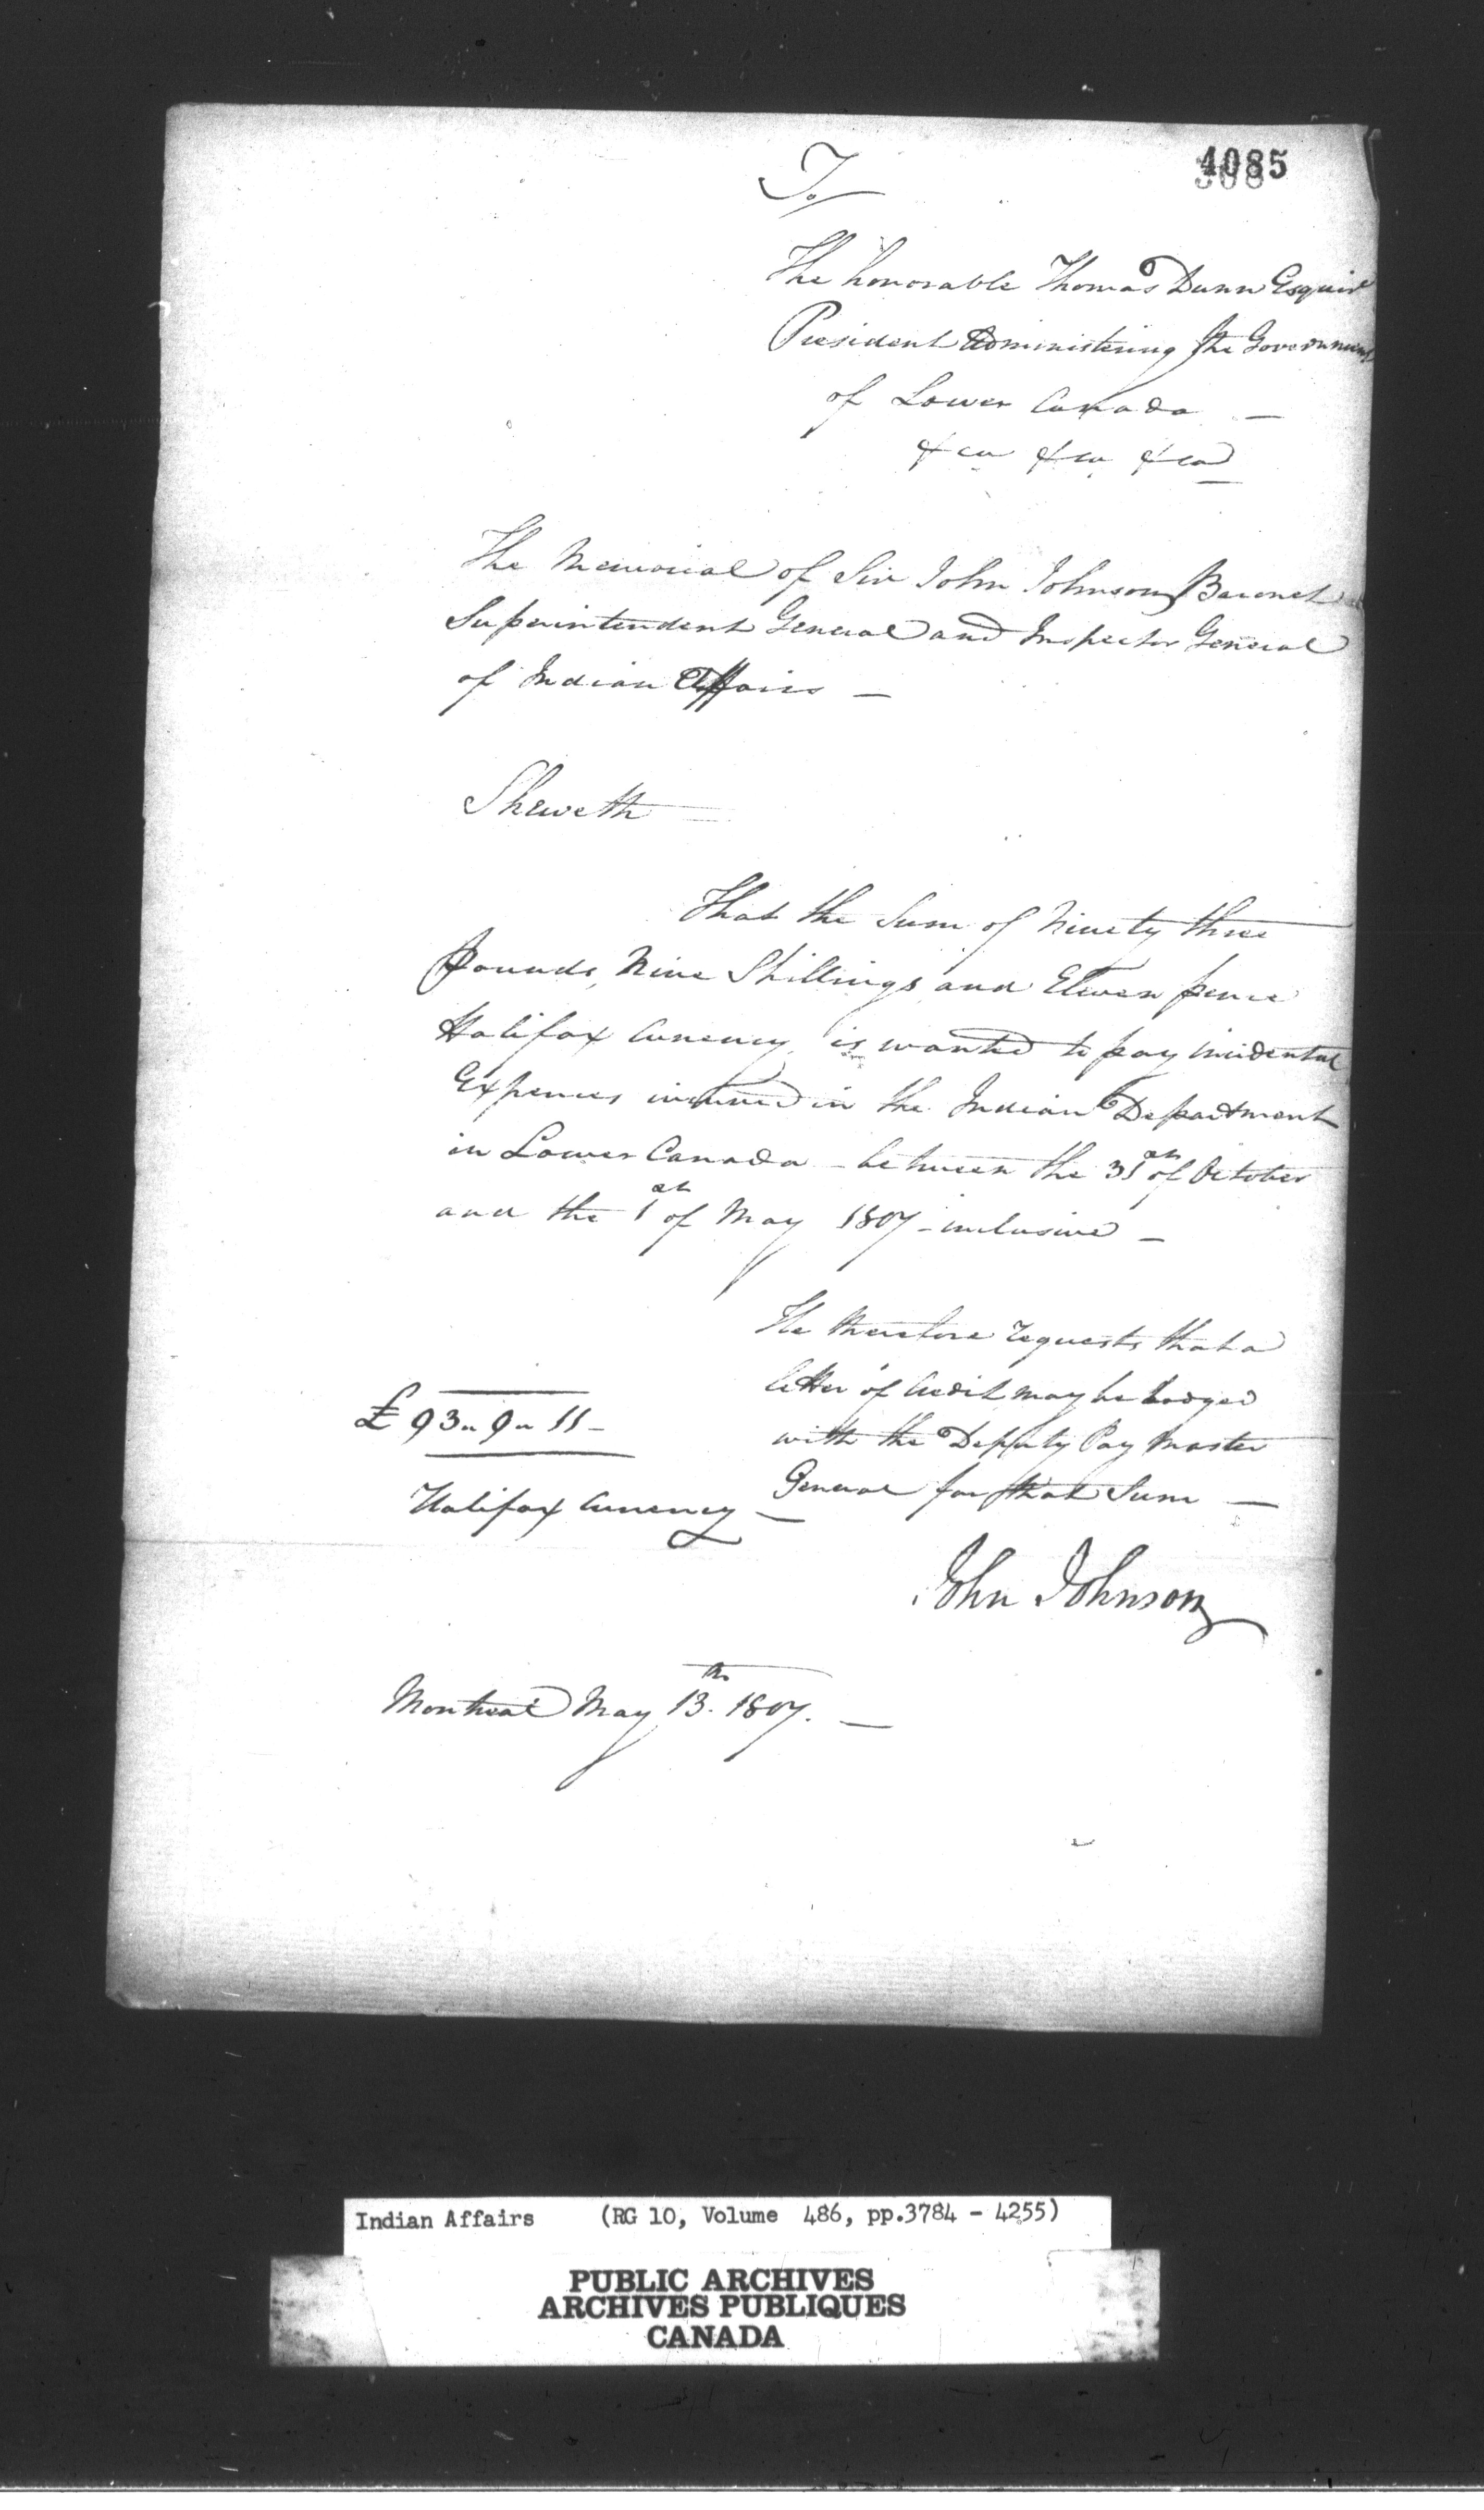 4085
To
The honorable Thomas Dunn Esquire
President Administering the Government
of Lower Canada —
&ca &ca &ca
The Memorial of Sir John Johnson Baronet
Superintendent General and Inspector General
of Indian Affairs —
Sheweth
That the Sum of Ninety three
Pounds, Nine Shillings and Eleven pence
Halifax Currency, is wanted to pay incidental
Expences incurred in the Indian Department
in Lower Canada between the 31st of October
and the 1st of May 1807 – inclusive —
He therefore requests that a
letter of Credit may be lodged
with the Deputy Pay Master
General for that Sum —
£ 93 " 9 " 11 –
Halifax Currency —
John Johnson
Montreal May 13th 1807. —
Indian Affairs (RG 10, Volume 486, pp.3784 - 4255)
PUBLIC ARCHIVES
ARCHIVES PUBLIQUES
CANADA